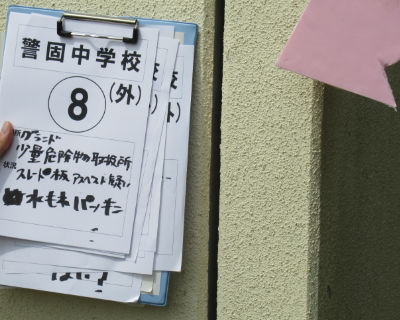 警固中学校
8 (外)
グランド
少量危険物の取扱所
状況
スレート板 アスベスト疑い
水もれ パッキン